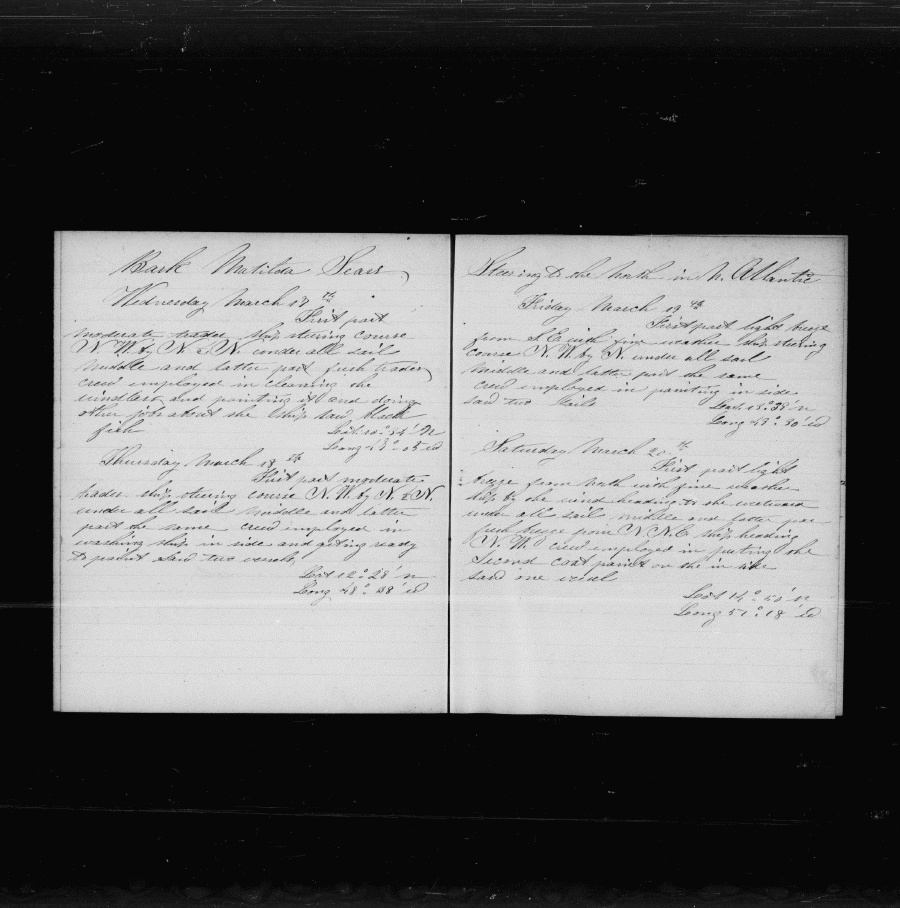 Bark Matilda Sears
Wednesday March 17th
First part
moderate trades ship stering course
N. W. by N. & N. under all sail
Middle and latter part fresh trades
crew employed in cleaning the
windlass and painting it and doing
other jobs about the ship saw black
fish
Lat. 10° 34' N
Long 43° 05 W
Thursday March 18th
First part moderate
trades ship stering course N. W. by N. & N.
under all sail middle and latter
part the same crew employed in
washing ship in side and geting ready
to paint Saw two vessels
Lat 12° 28' N
Long 48° 38' W
Steering to the North in N. Atlantic
Friday March 19th
First part light breze
from S. E. with fine weather ship stering
course N. W. by N. under all sail
Middle and latter part the same
crew employed in painting in side
saw two Sails
Lat. 13° 38' N
Long 49° 50' W
Saturday March 20th
First part light
breze from North with fine weather
ship by the wind heading to the westward
under all sail middle and latter par
fresh breze from N. N. E. ship heading
N. W. crew employed in puting the
Second coat paint on the in side
saw one vessel
Lat 14° 50' N
Long 51° 18' W